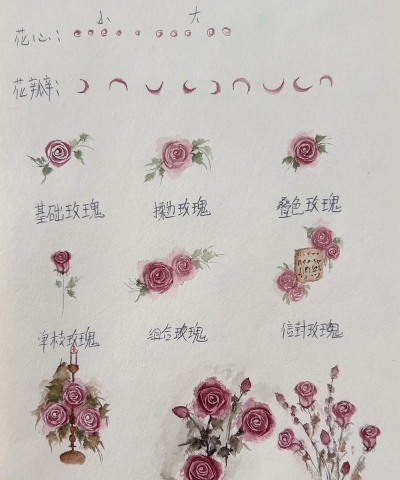 小 大
花心:
花瓣:
基础玫瑰 揉边玫瑰 叠色玫瑰
单枝玫瑰 组合玫瑰 信封玫瑰